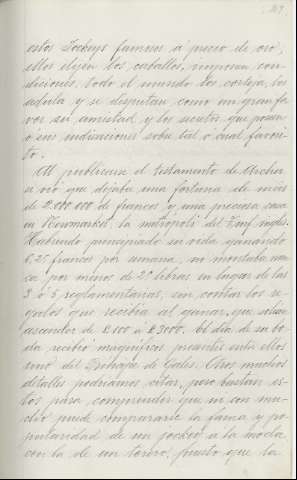 estos Jockeys famosos á precio de oro,
ellos elijen los caballos, imponen con-
diciones, todo el mundo los corteja, los
adula y se disputan como un gran fa-
vor su amistad y los secretos que posean
ó sus indicaciones sobre tal ó cual favori-
to.
Al publicarse el testamento de Archer
se vio que dejaba una fortuna de más
de 2.000.000 de francos y una preciosa casa
en Newmarket, la metrópoli del Turf inglés.
Habiendo principiado su vida ganando
6,25 francos por semana, no montaba nun-
ca por menos de 20 libras en lugar de las
3 ó 5 reglamentarias, sin contar los re-
galos que recibia al ganar, que solian
ascender de £100 á £300. El dia de su bo-
da recibió magnificos presentes entre ellos
uno del Principe de Gales. Otros muchos
detalles podriamos citar, pero bastan es-
tos para comprender que ni con mu-
cho puede compararse la fama y po-
pularidad de un jockey á la moda
con la de un torero, puesto que la